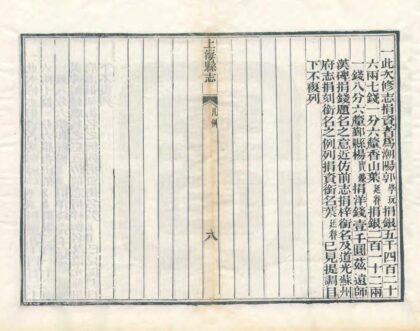 一此次修志捐資者爲潮陽郭學玩捐銀五千四百二十
六兩七錢一分六釐香山葉廷眷捐銀二百一十二兩
一錢八分六釐鄞縣楊寶鏞捐洋錢壹千圓茲遠師
漢碑捐錢題名之意近仿前志捐梓銜名及道光蘇州
府志捐刻銜名之例列捐資銜名葉廷眷已見提調目
下不復列
上海縣志
凡例
八